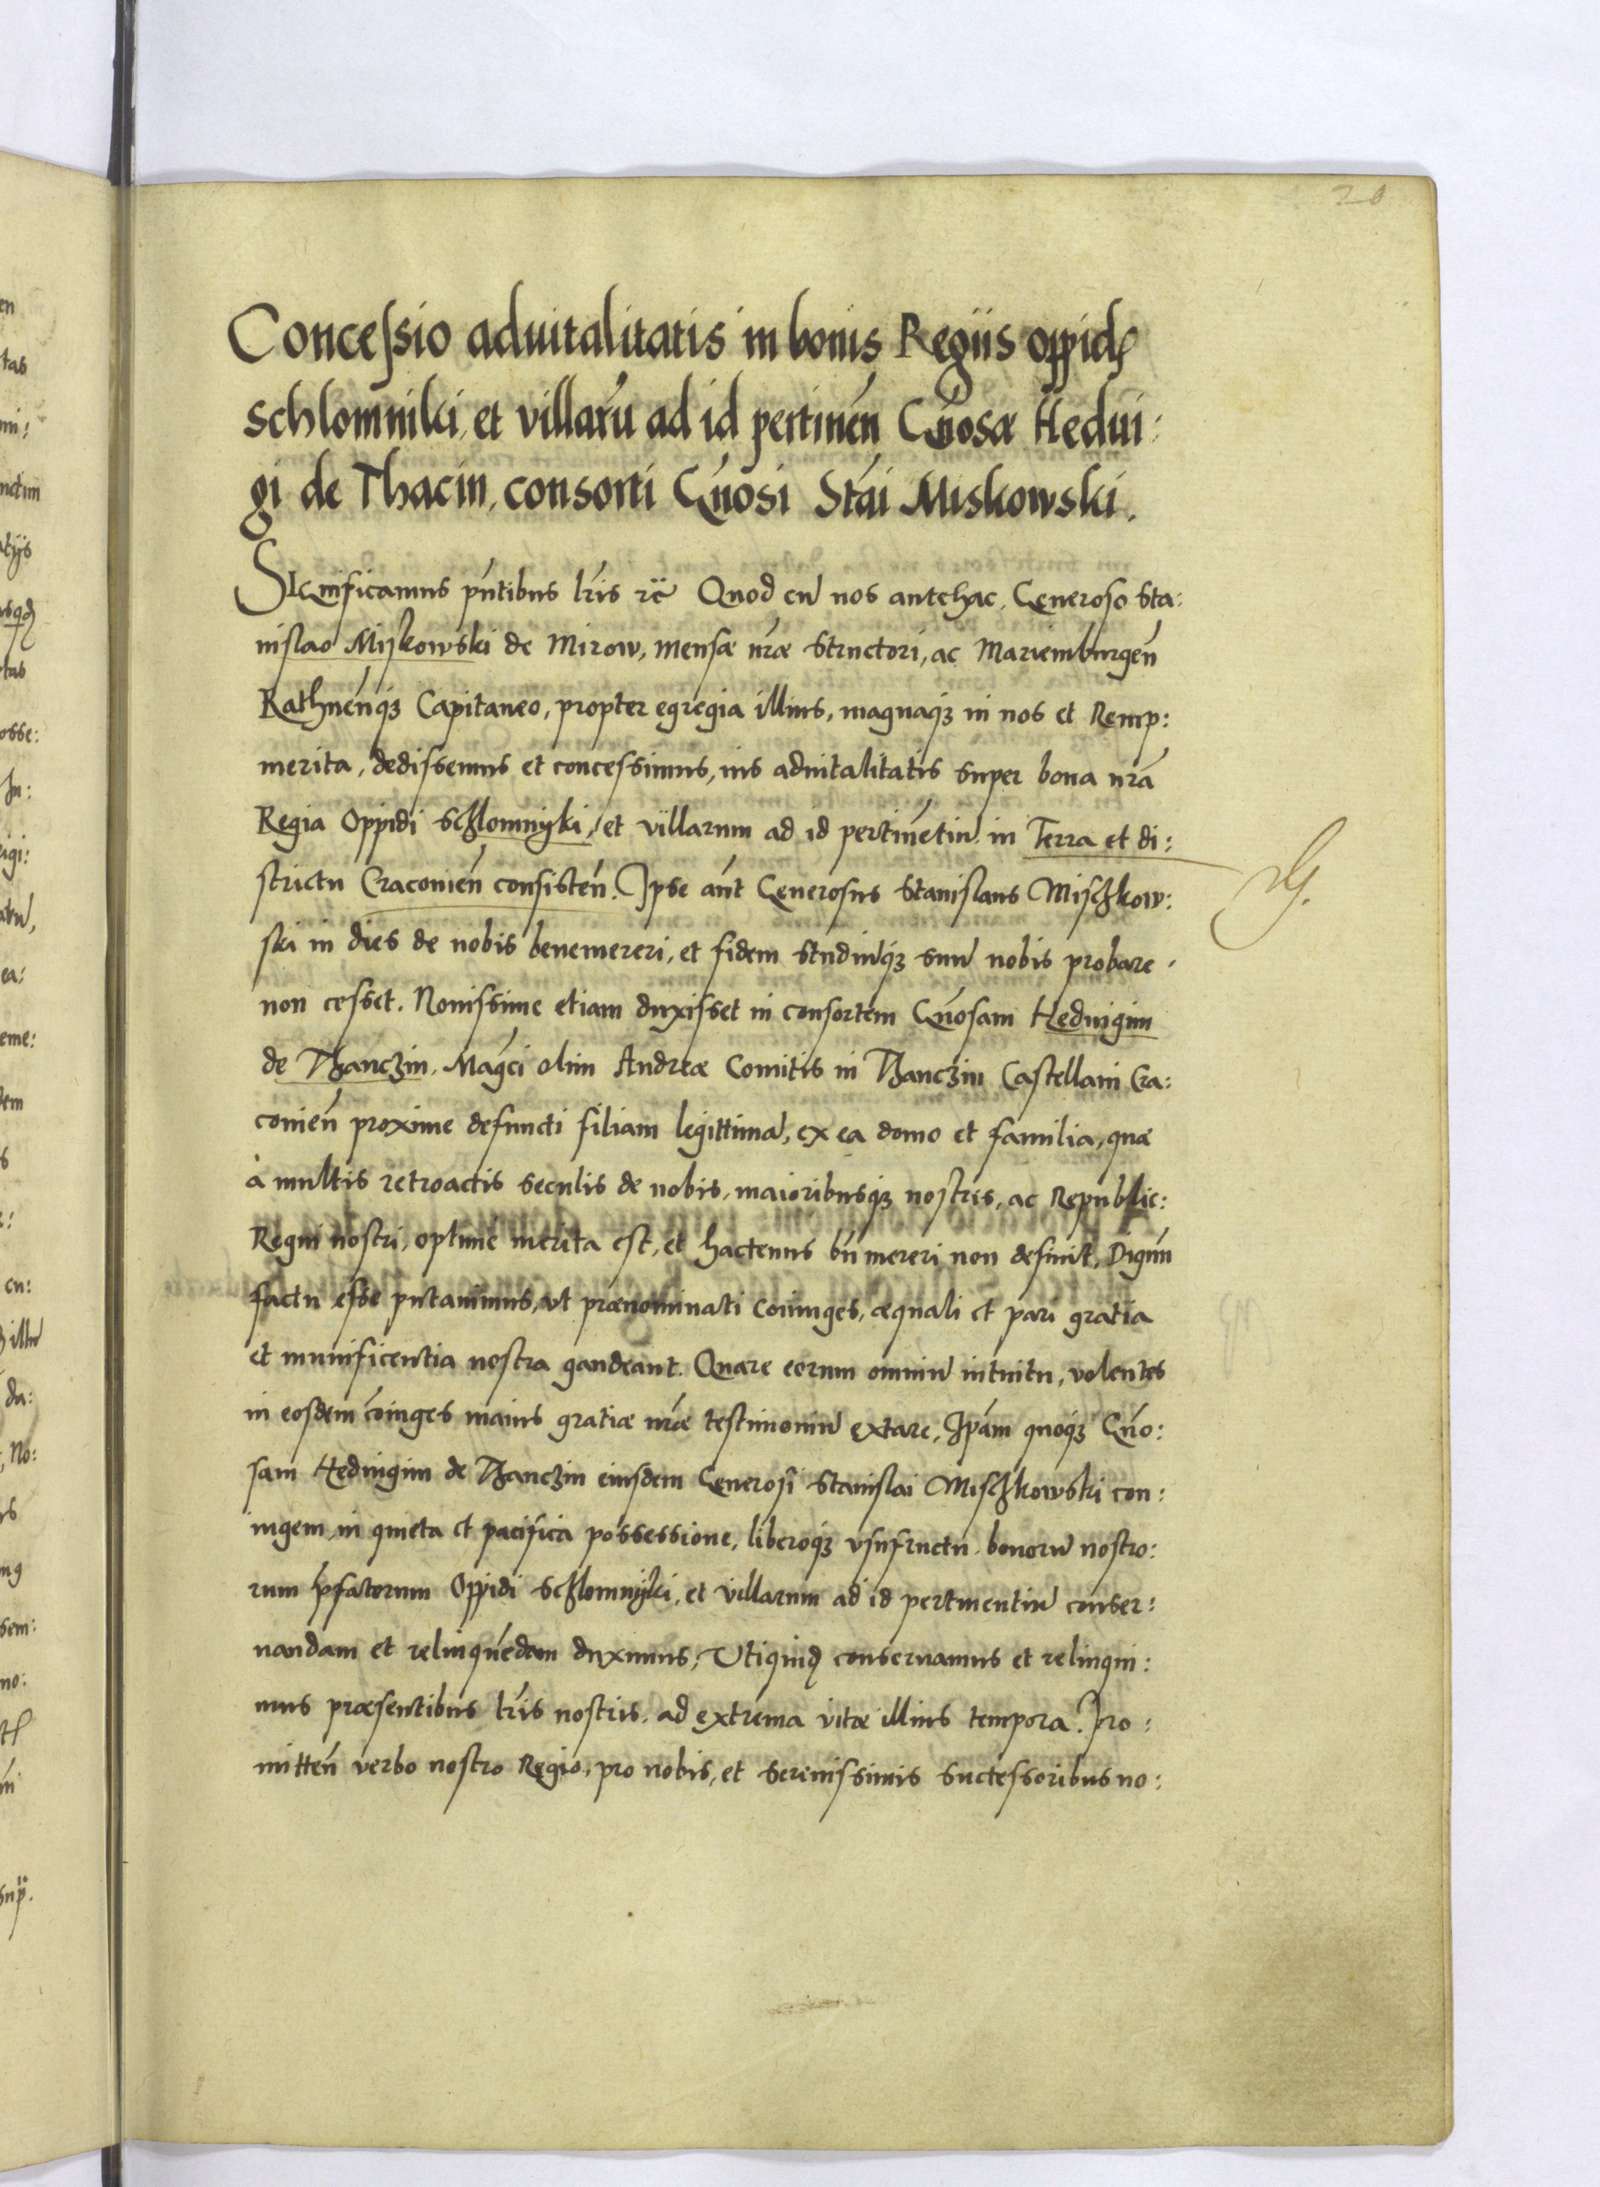 20
Concessio aduitalitatis in bonis Regiis oppidi
schlomniki, et villarū ad id pertineñ Gñosæ Hedui:
gi de Thacin, consorti Gñosi Stãi Miskowski.
SIGnificamus pñtibus lřis rc̃ Quod cū nos antehac, Generoso Sta:
nislao Miskowski de Mirow, mensæ nr̃æ Structori, ac Mariemburgeñ
Rathneñqȝ Capitaneo, propter egregia illius, magnaqȝ in nos et Remp:
merita, dedissemus et concessimus, ius aduitalitatis super bona nr̃a
Regia Oppidi Schlomnyki, et villarum ad id pertinẽtiū in Terra et di:
strictu Cracouieñ consisteñ. Ipse aũt Generosus Stanislaus Mischkow:
ski in dies de nobis benemereri, et fidem studiūqȝ suū nobis probare
non cesset. Nouissime etiam duxisset in consortem Gñosam Heduigim
de Thanczin, Magci olim Andreæ Comitis in Thanczin Castellani Cra:
couieñ proxime defuncti filiam legittimā, ex ea domo et familia, quæ
à multis retroactis seculis de nobis, maioribusqȝ nostris, ac Republic:
Regni nostri, optime merita est, et hactenus bñ mereri non desinit, Dignũ
factu esse putauimus, vt prænominati Coniuges, æquali et pari gratia
et munificentia nostra gaudeant. Quare eorum omniū intuitu, volentes
in eosdem cõiuges maius gratiæ nr̃æ testimoniū extare, Ipãm quoqȝ Gño:
sam Heduigim de Thanczin eiusdem Generosi Stanislai Mischkowski con:
iugem, in quieta et pacifica possessione, liberoqȝ vsufructu bonorū nostro:
rum pfatorum Oppidi Schlomnyki, et villarum ad id pertinentiū conser:
uandam et relinquẽdam duximus, Vtiquidē conseruamus et relinqui:
mus præsentibus lřis nostris, ad extrema vitæ illius tempora. Pro:
mitteñ verbo nostro Regio, pro nobis, et serenissimis successoribus no: